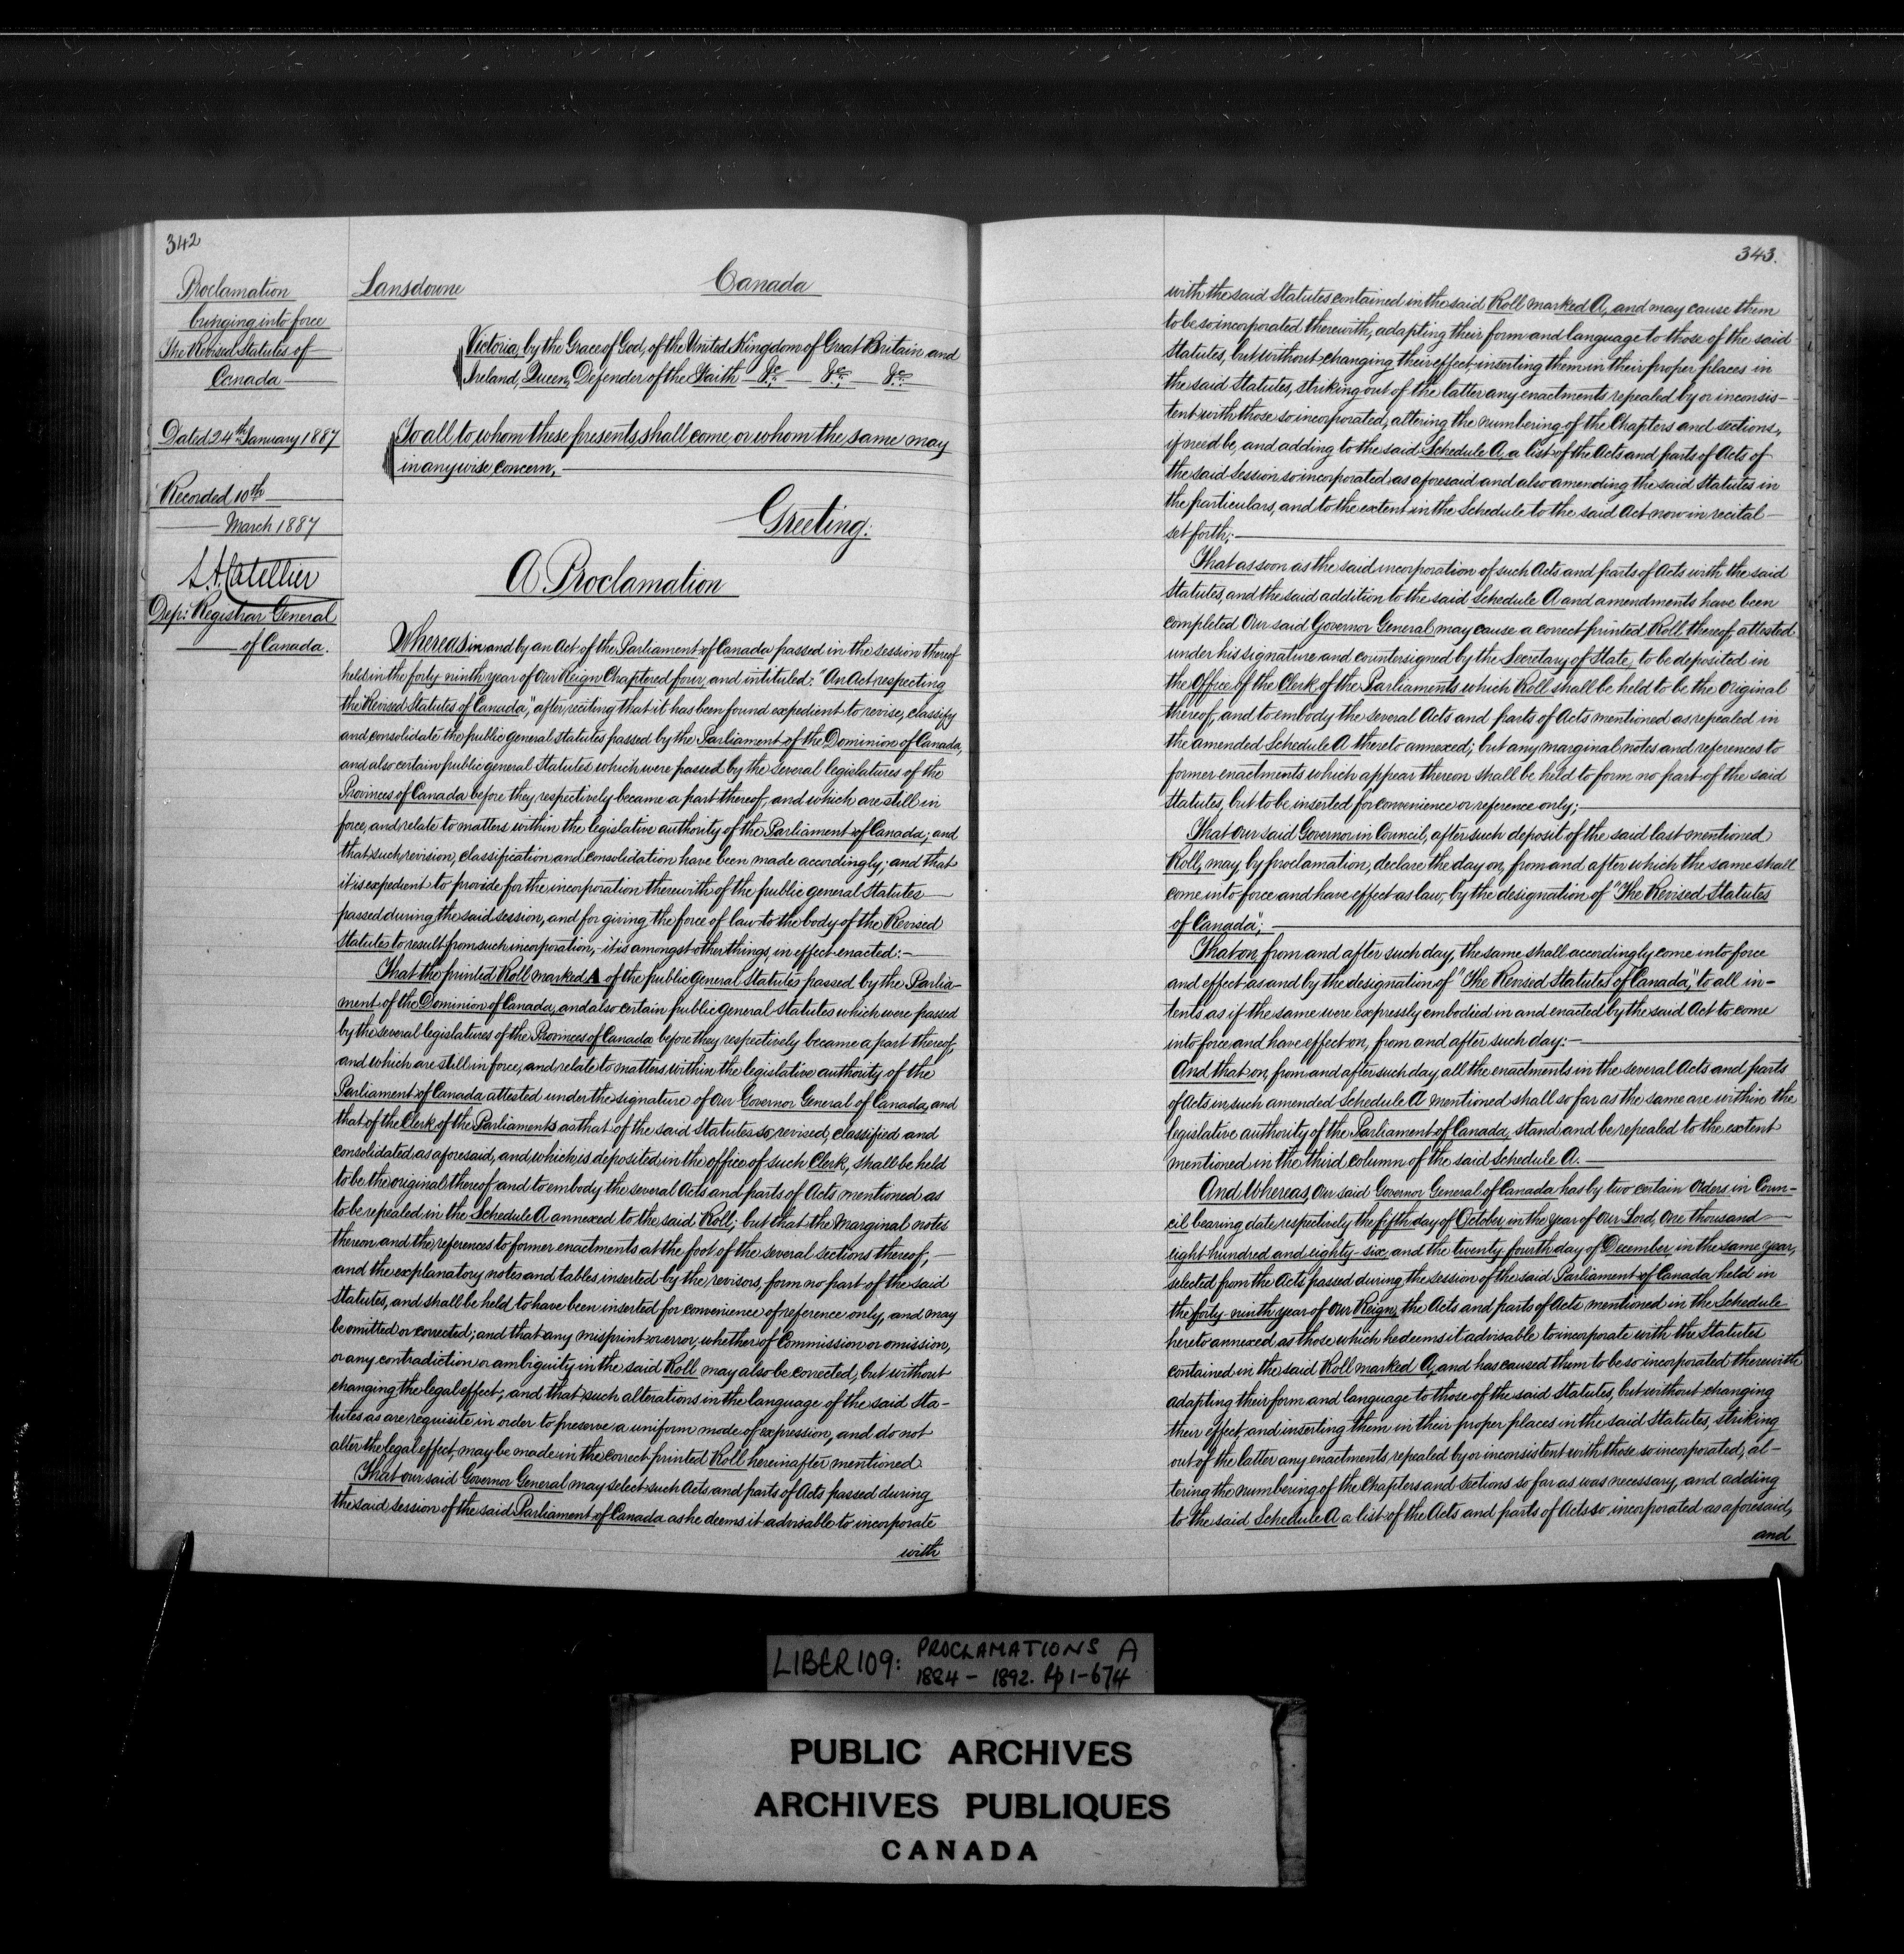 342
Proclamation
bringing into force
The Revised Statutes of
Canada
Dated 24th January 1887
Recorded 10th
March 1887
L.A. Catellier
Dep: Registrar General
of Canada.
Lansdowne
Canada
Victoria, by the Grace of God, of the United Kingdom of Great Britain and
Ireland, Queen, Defender of the Faith &c. &c. &c.
To all to whom these presents shall come or whom the same may
in anywise concern,
Greeting:
A Proclamation
Whereas in and by an Act of the Parliament of Canada passed in the session thereof
held in the forty ninth year of Our Reign Chaptered four, and intituled: "An Act respecting
the "Revised Statutes of Canada," after reciting that it has been found expedient to revise, classify
and consolidate the public general statutes passed by the Parliament of the Dominion of Canada,
and also certain public general Statutes which were passed by the several legislatures of the
Provinces of Canada before they respectively became a part thereof, and which are still in
force, and relate to matters within the legislative authority of the Parliament of Canada; and
that such revision, classification and consolidation have been made accordingly; and that
it is expedient to provide for the incorporation therewith of the public general Statutes
passed during the said session, and for giving the force of law to the body of the Revised
Statutes to result from such incorporation, it is amongst other things, in effect enacted:-
That the printed Roll marked A of the public general Statutes passed by the Parlia-
ment of the Dominion of Canada, and also certain public general Statutes which were passed
by the several legislatures of the Provinces of Canada before they respectively became a part thereof,
and which are still in force, and relate to matters within the legislative authority of the
Parliament of Canada attested under the signature of Our Governor General of Canada, and
that of the Clerk of the Parliaments as that of the said Statutes so revised, classified and
consolidated as aforesaid, and which is deposited in the office of such Clerk, shall be held
to be the original thereof and to embody the several Acts and parts of Acts mentioned as
to be repealed in the Schedule A annexed to the said Roll; but that the marginal notes
thereon and the references to former enactments at the foot of the several sections thereof,
and the explanatory notes and tables inserted by the revisors, form no part of the said
Statutes, and shall be held to have been inserted for convenience of reference only, and may
be omitted or corrected; and that any misprint or error, whether of Commission or omission,
or any contradiction or ambiguity in the said Roll may also be corrected, but without
changing the legal effect, and that such alterations in the language of the said Sta-
tutes as are requisite in order to preserve a uniform mode of expression, and do not
alter the legal effect, may be made in the correct printed Roll hereinafter mentioned.
That our said Governor General may select such Acts and parts of Acts passed during
the said session of the said Parliament of Canada as he deems it advisable to incorporate
with
343.
with the said Statutes contained in the said Roll marked A, and may cause them
to be so incorporated therewith, adapting their form and language to those of the said
Statutes, but without changing their effect, inserting them in their proper places in
the said Statutes, striking out of the latter any enactments repealed by or inconsis-
tent with those so incorporated, altering the numbering of the Chapters and sections,
if need be, and adding to the said Schedule A, a list of the Acts and parts of Acts of
the said Session so incorporated as aforesaid and also amending the said Statutes in
the particulars, and to the extent in the Schedule to the said Act now in recital
set forth;
That as soon as the said incorporation of such Acts and parts of Acts with the said
Statutes, and the said addition to the said Schedule A and amendments have been
completed Our said Governor General may cause a correct printed Roll thereof, attested
under his signature and countersigned by the Secretary of State, to be deposited in
the Office of the Clerk of the Parliaments which Roll shall be held to be the original
thereof, and to embody the several Acts and parts of Acts mentioned as repealed in
the amended Schedule A thereto annexed; but any marginal notes and references to
former enactments which appear thereon shall be held to form no part of the said
Statutes, but to be inserted for convenience or reference only;
That Our said Governor in Council, after such deposit of the said last mentioned
Roll, may, by proclamation, declare the day on, from and after which the same shall
come into force and have effect as law, by the designation of "The Revised Statutes
of Canada";
That on, from and after such day, the same shall accordingly come into force
and effect as and by the designation of "The Revised Statutes of Canada," to all in-
tents as if the same were expressly embodied in and enacted by the said Act to come
into force and have effect on, from and after such day:-
And that on, from and after such day, all the enactments in the several Acts and parts
of Acts in such amended Schedule A mentioned shall so far as the same are within the
legislative authority of the Parliament of Canada, stand and be repealed to the extent
mentioned in the third column of the said Schedule A.
And Whereas, Our said Governor General of Canada has by two certain Orders in Coun-
cil bearing date respectively the fifth day of October, in the Year of Our Lord, One thousand
eight hundred and eighty-six, and the twenty fourth day of December, in the same Year,
selected from the Acts passed during the session of the said Parliament of Canada held in
the forty ninth year of Our Reign, the Acts and parts of Acts mentioned in the Schedule
hereto annexed as those which he deems it advisable to incorporate with the Statutes
contained in the said Roll marked A, and has caused them to be so incorporated therewith
adapting their form and language to those of the said Statutes, but without changing
their effect, and inserting them in their proper places in the said Statutes, striking
out of the latter any enactments, repealed by or inconsistent with those so incorporated, al-
tering the numbering of the Chapters and Sections so far as was necessary, and adding
to the said Schedule A a list of the Acts and parts of Acts so incorporated as aforesaid,
and
LIBER 109: PROCLAMATIONS A
1884 - 1892. Pp 1-674
PUBLIC ARCHIVES
ARCHIVES PUBLIQUES
CANADA